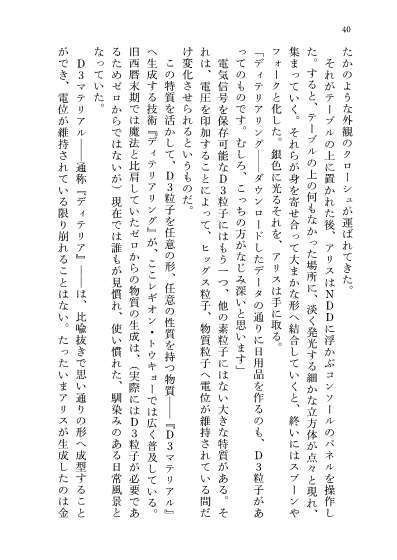 40
たかのような外観のクローシュが運ばれてきた。
それがテーブルの上に置かれた後、アリスはNDDに浮かぶコンソールのパネルを操作し
た。すると、テーブルの上の何もなかった場所に、淡く発光する細かな立方体が点々と現れ、
集まっていく。それらが身を寄せ合って大まかな形へ結合していくと、終いにはスプーンや
フォークと化した。銀色に光るそれを、アリスは手に取る。
「ディテリアリング――ダウンロードしたデータの通りに日用品を作るのも、D3粒子があ
ってのものです。むしろ、こっちの方がなじみ深いと思います」
電気信号を保存可能なD3粒子にはもう一つ、他の素粒子にはない大きな特質がある。そ
れは、電圧を印加することによって、ヒッグス粒子、物質粒子へ電位が維持されている間だ
け変化させられるというものだ。
この特質を活かして、D3粒子を任意の形、任意の性質を持つ物質――『D3マテリアル』
へ生成する技術『ディテリアリング』が、ここレギオン・トウキョーでは広く普及している。
旧西暦末期では魔法と比肩していたゼロからの物質の生成は、（実際にはD3粒子が必要であ
るためゼロからではないが）現在では誰もが見慣れ、使い慣れた、馴染みのある日常風景と
なっていた。
D3マテリアル――通称『ディテリア』――は、比喩抜きで思い通りの形へ成型すること
ができ、電位が維持されている限り崩れることはない。たったいまアリスが生成したのは金